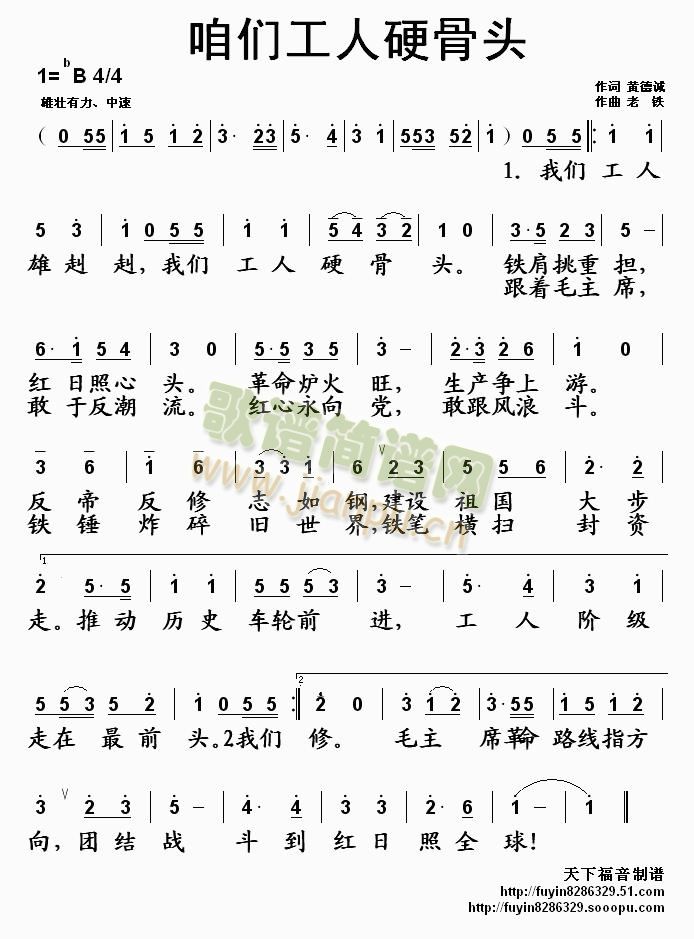 咱们工人硬骨头
1= ᵇB 4/4
作词 黄德诚
雄壮有力、中速
作曲 老 铁
( 0 5 5 | 1̇ 5 1̇ 2̇ | 3̇· 2̇3̇ | 2̇· 5 | 5· 4 | 3̇ 1̇ | 5 5 3 5 2̇ | 1̇ ) 0 5 5 ‖: 1̇ 1̇
1. 我们 工 人
5 3̇ | 1̇ 0 5 5 | 1̇ 1̇ | 5 4̇ 3̇ 2̇ | 1̇ 0 | 3·5 2 3 | 5 0
雄 赳 赳, 我们 工 人 硬 骨 头。 铁肩挑重 担,
跟着毛主 席,
6·1̇ 5 4 | 3 0 | 5·5 3 5 | 3̇ – | 2·3̇ 2̇ 6 | 1̇ 0
红 日照心 头。 革命炉火 旺, 生产争上 游。
敢 于反潮 流。 红心永向 党, 敢跟风浪 斗。
歌谱简谱网
www.jianpu.cn
3̇ 6 | 1̇ 6 | 3̇ 3̇ 1̇ | 6 ∨ 2̇ 3̇ | 5 5 6 | 2̇· 2̇
反 帝 反 修 志 如 钢,建设 祖 国 大 步
铁 锤 炸 碎 旧 世 界,铁笔 横 扫 封 资
1
2̇ 5·5 | 1̇ 1̇ | 5·5 5 3̇ | 3̇ – | 5· 4̇ | 3̇ 1̇
走。推动 历 史 车轮前 进, 工 人 阶 级
2
5 5 3̇ | 5 2̇ | 1̇ 0 5 5 :‖ 2̇ 0 | 3̇ 1̇ 2̇ | 3̇·5 5 | 1̇ 5 1̇ 2̇
走在 最 前 头。2我们 修。 毛 主 席革命 路线指方
3̇ ∨ 2̇ 3̇ | 5 – | 4̇· 4̇ | 3̇ 3̇ | 2̇· 6 | 1̇ – | 1̇ ‖
向, 团 结 战 斗 到 红 日 照 全 球!
天下福音制谱
http://fuyin8286329.51.com
http://fuyin8286329.sooopu.com